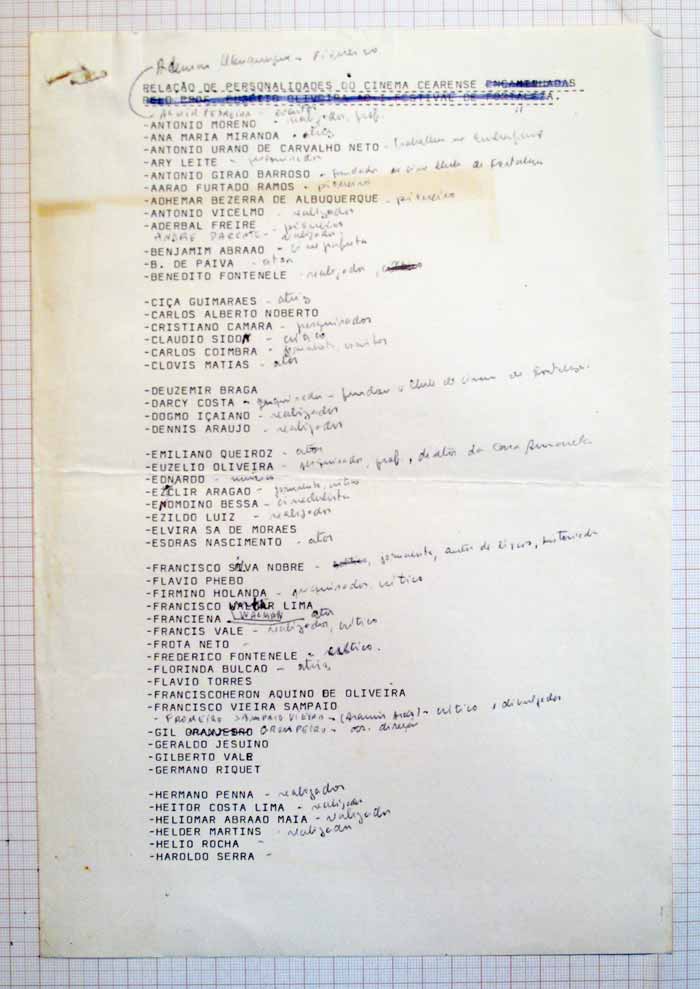 Ademar Albuquerque - Pioneiro
RELAÇÃO DE PERSONALIDADES DO CINEMA CEARENSE ENCAMINHADAS
PELO PROF. EUZELIO OLIVEIRA AO I FESTIVAL DE FORTALEZA.
-ANTONIO MORENO - realizador, prof.
-ANA MARIA MIRANDA - atriz
-ANTONIO URANO DE CARVALHO NETO - trabalhou na Embrafilme
-ARY LEITE - pesquisador
-ANTONIO GIRAO BARROSO - fundador do cine clube de Fortaleza
-AARAO FURTADO RAMOS - pioneiro
-ADHEMAR BEZERRA DE ALBUQUERQUE - pioneiro
-ANTONIO VICELMO - realizador
-ADERBAL FREIRE - pioneiro
ANDRÉ PARENTE - realizador
-BENJAMIM ABRAAO - cinegrafista
-B. DE PAIVA - ator
-BENEDITO FONTENELE - realizador,
-CIÇA GUIMARAES - atriz
-CARLOS ALBERTO NOBERTO
-CRISTIANO CAMARA - pesquisador
-CLAUDIO SIDOX - crítico
-CARLOS COIMBRA - jornalista,
-CLOVIS MATIAS - ator
-DEUZEMIR BRAGA
-DARCY COSTA - pesquisador - fundou o Clube de Cinema de Fortaleza.
-DOGMO IÇAIANO - realizador
-DENNIS ARAUJO - realizador
-EMILIANO QUEIROZ - ator
-EUZELIO OLIVEIRA - pesquisador, prof., diretor da Casa Amarela
-EDNARDO - músico
-EZCLIR ARAGAO - jornalista, crítico
-ENOMDINO BESSA - cineclubista
-EZILDO LUIZ - realizador
-ELVIRA SA DE MORAES
-ESDRAS NASCIMENTO - ator
-FRANCISCO SILVA NOBRE - crítico, jornalista, autor de livros, historiador
-FLAVIO PHEBO
-FIRMINO HOLANDA - pesquisador, crítico
-FRANCISCO LIMA
-FRANCIENA - ator
-FRANCIS VALE - realizador, crítico
-FROTA NETO -
-FREDERICO FONTENELE - crítico.
-FLORINDA BULCAO - atriz
-FLAVIO TORRES
-FRANCISCOHERON AQUINO DE OLIVEIRA
-FRANCISCO VIEIRA SAMPAIO
- SAMPAIO VIEIRA - crítico e divulgador
-GIL - direção
-GERALDO JESUINO
-GILBERTO VALE
-GERMANO RIQUET
-HERMANO PENNA - realizador
-HEITOR COSTA LIMA - realizador
-HELIOMAR ABRAAO MAIA - realizador
-HELDER MARTINS - realizador
-HELIO ROCHA -
-HAROLDO SERRA -